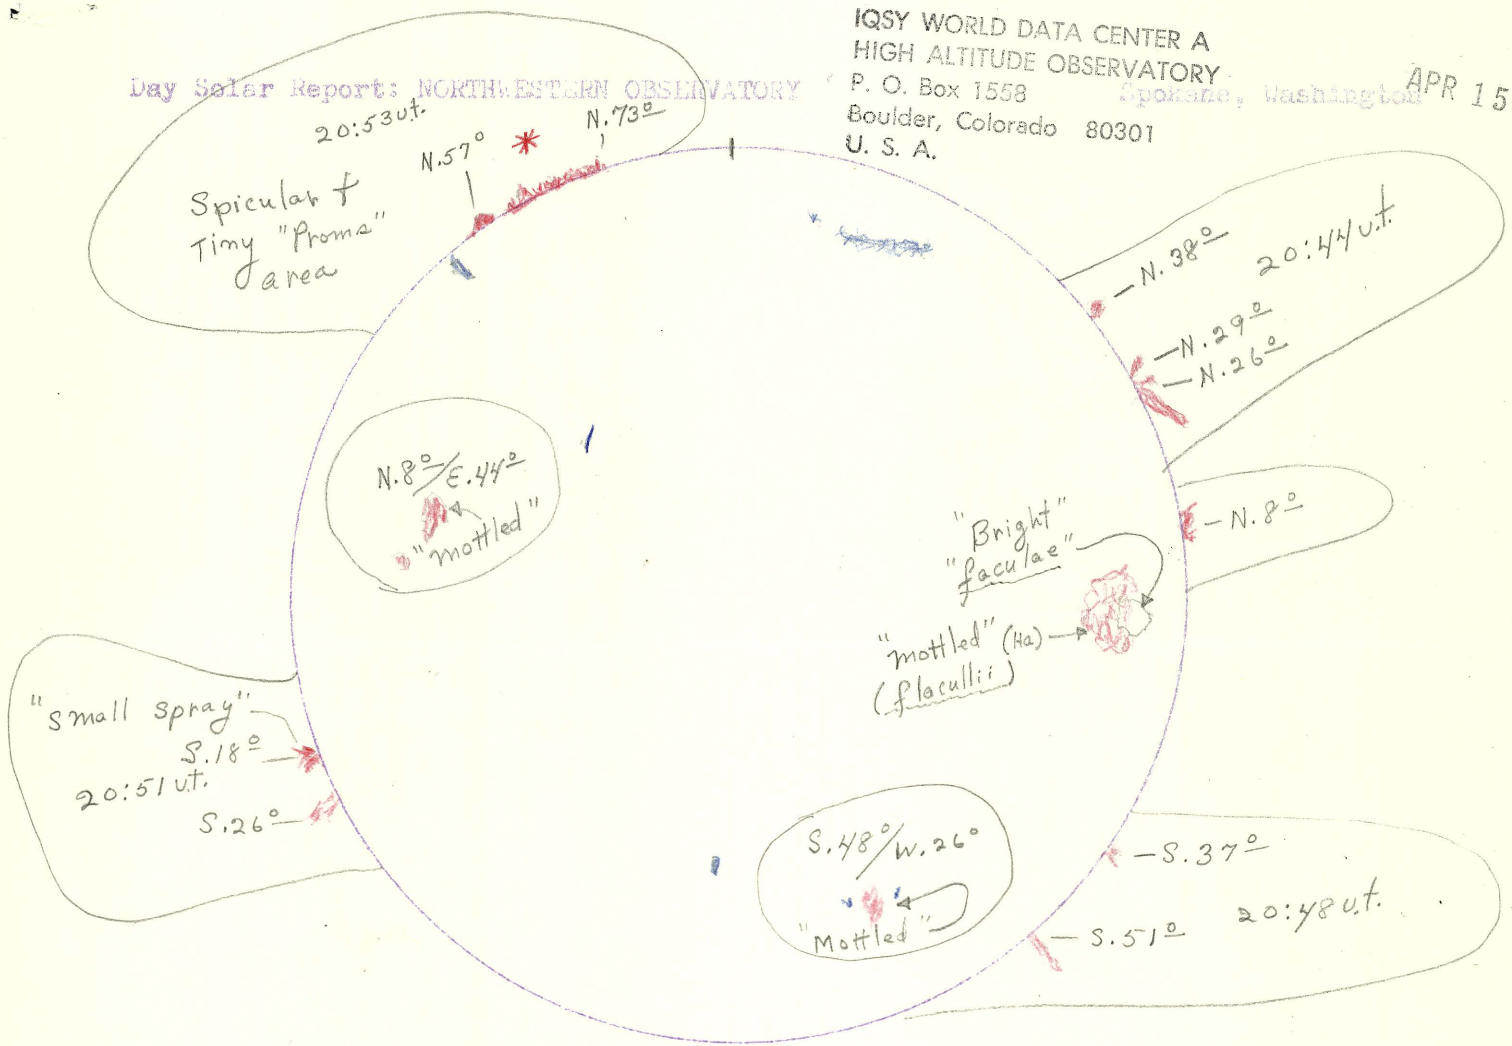 IQSY WORLD DATA CENTER A
HIGH ALTITUDE OBSERVATORY
P. O. Box 1558
Boulder, Colorado 80301
U. S. A.
APR 15
Day Solar Report: NORTHWESTERN OBSERVATORY Spokane, Washington
20:53 u.t.
N.57° * N.73°
Spicular +
Tiny "Proms"
area
N.38°
20:44 u.t.
N.29°
N.26°
N.8°/E.44°
"mottled"
N.8°
"Bright"
"faculae"
"mottled" (Ha)
(flacullii)
"small spray"
S.18°
20:51 u.t.
S.26°
S.48°/W.26°
"Mottled"
S.37°
20:48 u.t.
S.51°